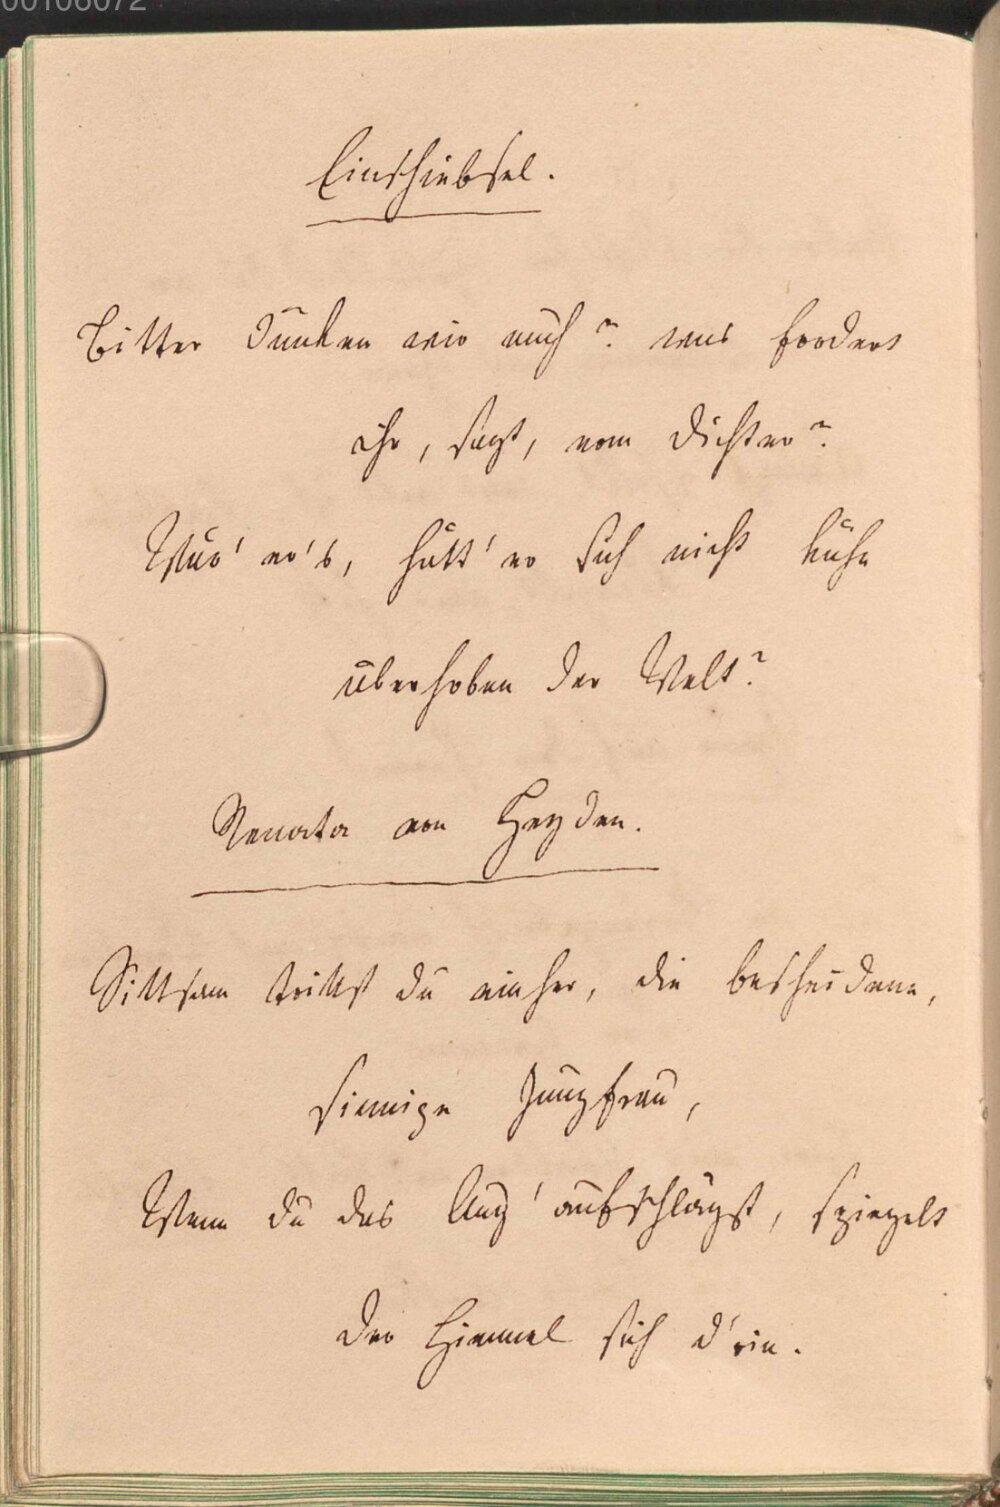 00106072
Einschiebsel.
Bitter dünken wir euch? was fordert
ihr, sagt, vom Dichter?
Wär' er's, hätt' er sich nicht kühn
überhoben der Welt?
Renata von Heyden.
Sittsam trittst du einher, die bescheidene,
sinnige Jungfrau,
Wenn du das Aug' aufschlägst, spiegelt
der Himmel sich d'rin.